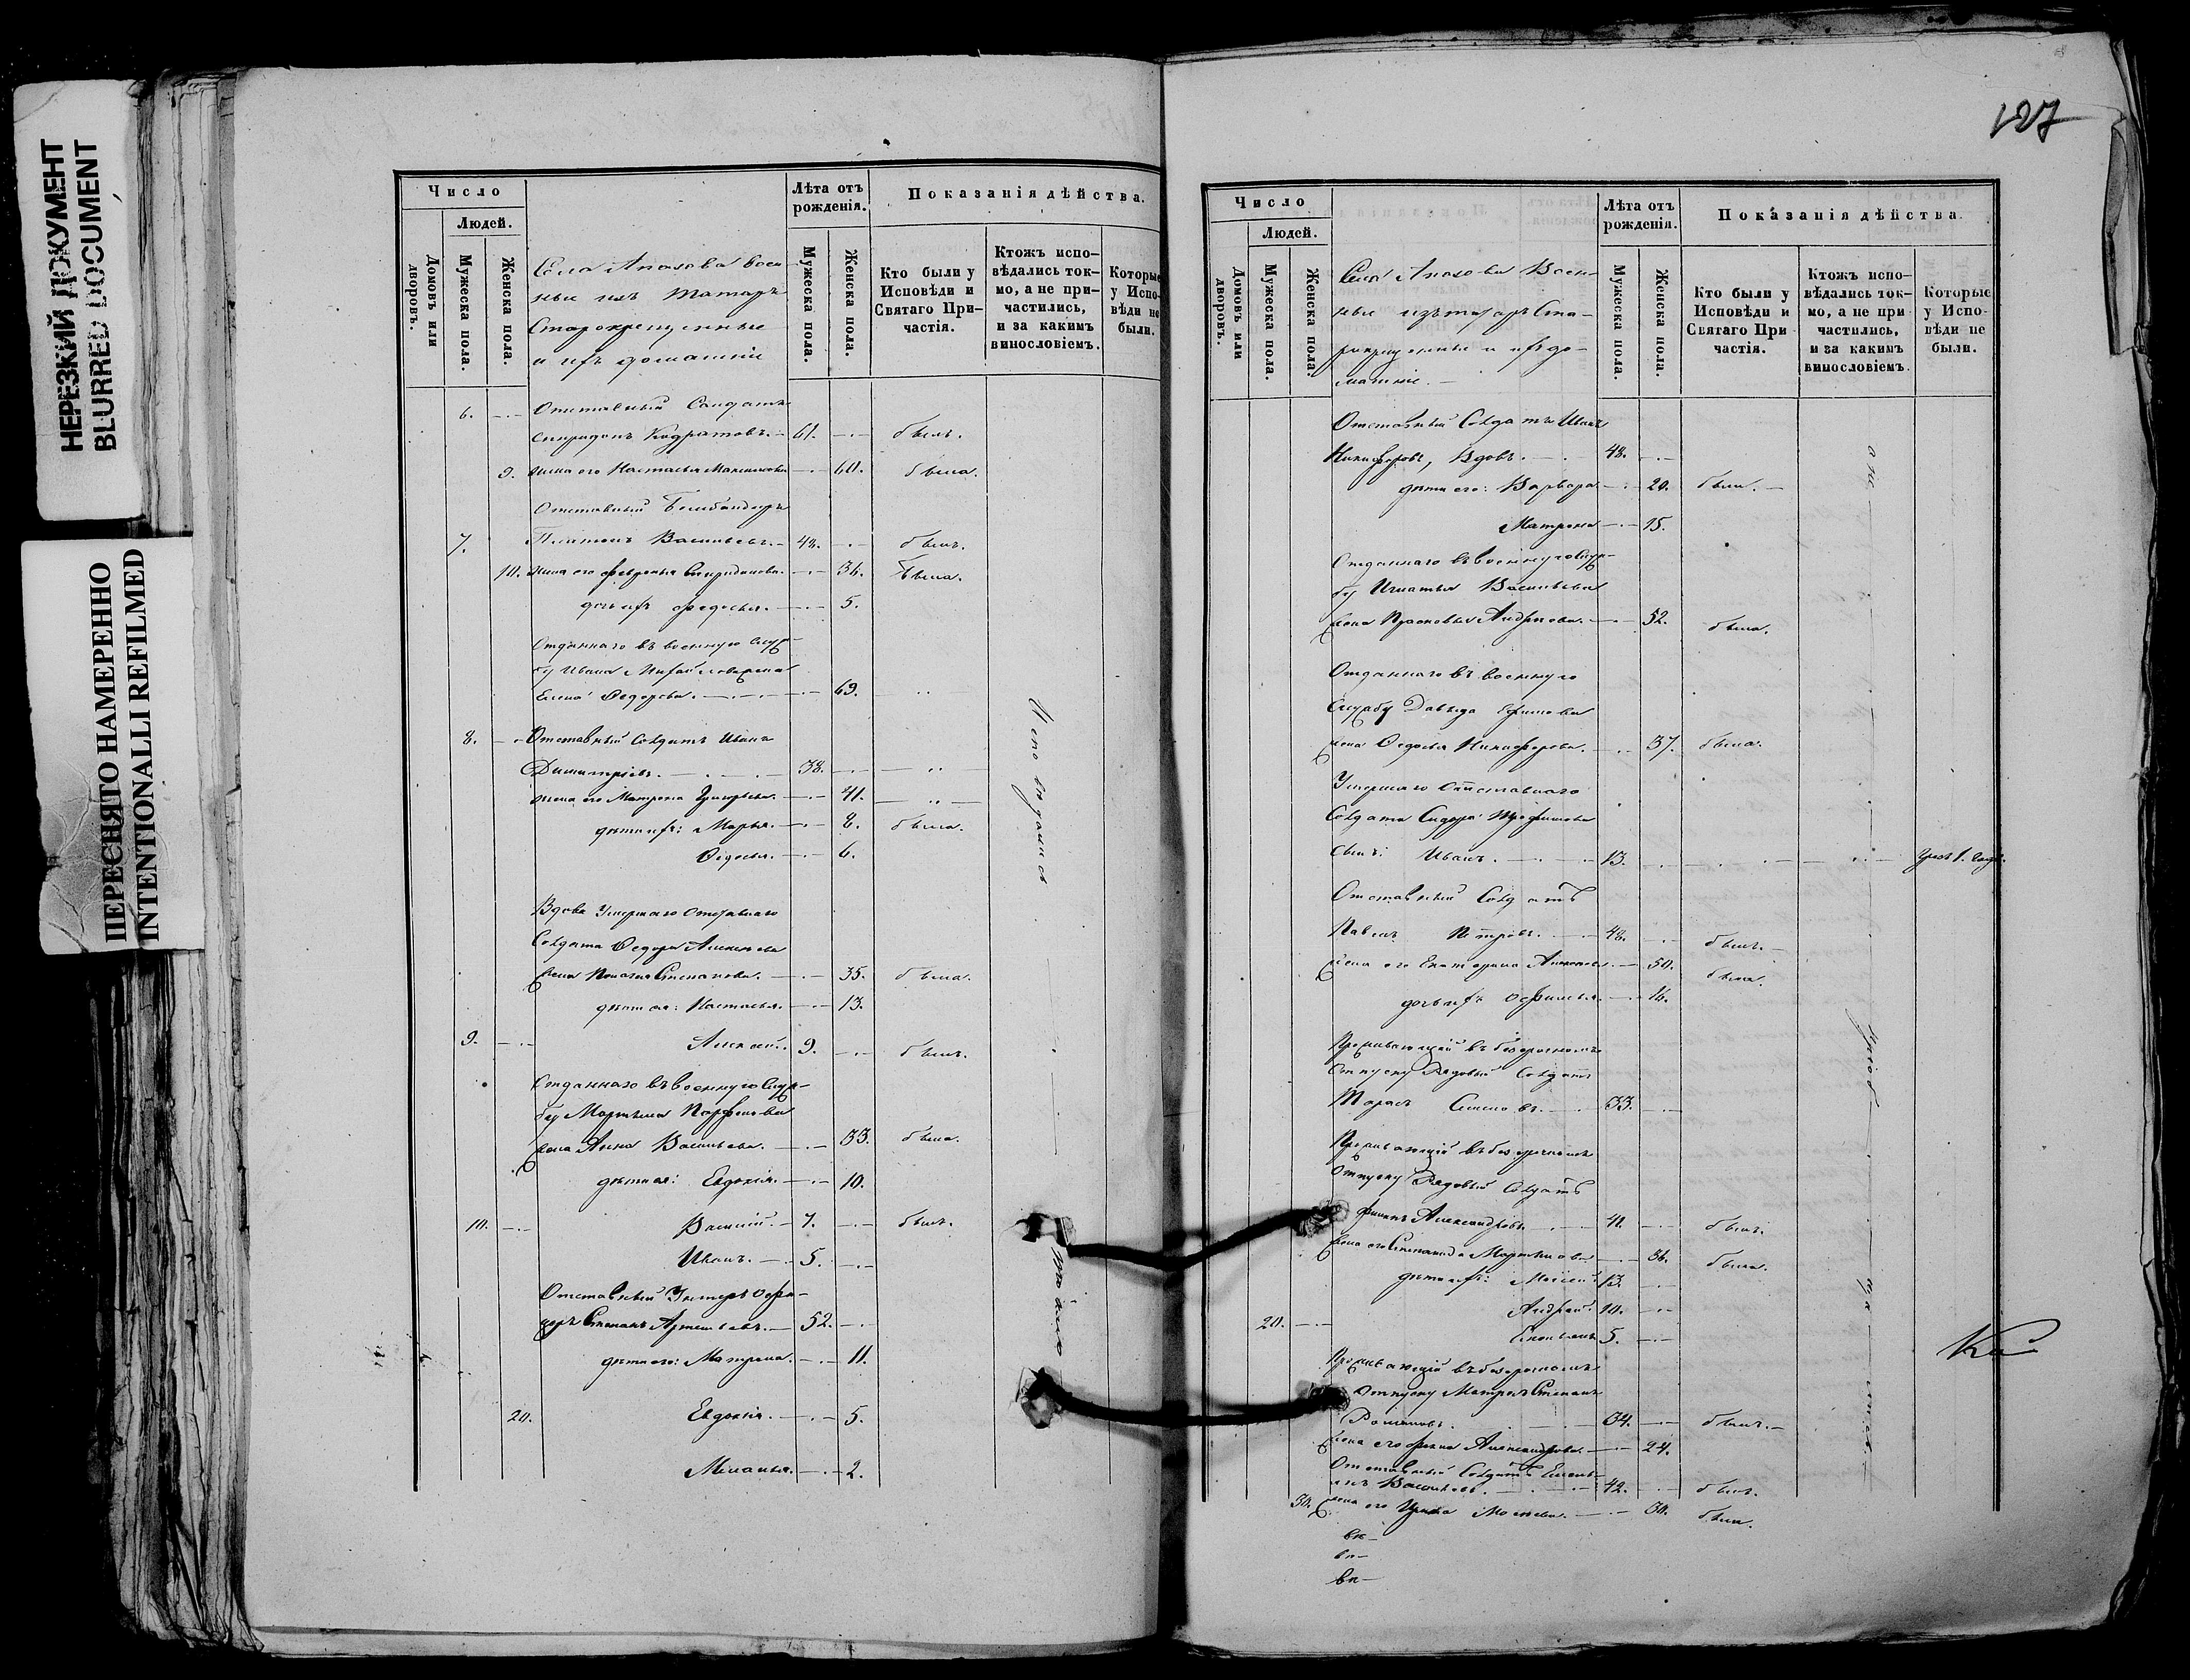 НЕРЕЗКИЙ ДОКУМЕНТ
BLURRED DOCUMENT
ПЕРЕСНЯТО НАМЕРЕННО
INTENTIONALLI REFILMED
Число
Людей.
Домовъ или дворовъ.
Мужеска пола.
Женска пола.
Лѣта отъ рожденія.
Мужеска пола.
Женска пола.
Показанія дѣйства.
Кто были у Исповѣди и Святаго Причастія.
Ктожъ исповѣдались токмо, а не причастились, и за какимъ винословіемъ.
Которые у Исповѣди не были.
Села Апазова Воен-
ные изъ Татаръ
Старокрещенные
и ихъ домашніи
6. Отставный Солдатъ
Спиридонъ Кодратовъ. 61. былъ.
9. жена его Настасья Максимова 60. была.
Отставный Бомбандиръ
7. Платонъ Васильевъ. 48. былъ.
10. жена его Февронья Спиридонова. 36. была.
дочь ихъ Федосья. 5.
Отданнаго въ военную служ-
бу Ивана Михайлова жена
Елена Федорова. 69.
8. Отставный Солдатъ Иванъ
Димитріевъ. 38.
жена его Матрона Григорьева. 41.
дѣти ихъ: Марья. 8. была.
Федосья. 6.
Вдова Умершаго Отставнаго
Солдата Федора Алексѣева
жена Пелагея Степанова. 35. была.
дѣти ея: Настасья. 13.
9. Алексей. 9. былъ.
Отданнаго въ военную Служ-
бу Мартына Парфенова
жена Анна Васильева. 33. была.
дѣти ея: Евдокія. 10.
10. Василій. 7. былъ.
Иванъ. 5.
Отставный Унтеръ офи-
церъ Степанъ Артемьевъ. 52.
дѣти его: Матрона. 11.
20. Евдокія. 5.
Меланья. 2.
Исповѣдались
127
Число
Людей.
Домовъ или дворовъ.
Мужеска пола.
Женска пола.
Лѣта отъ рожденія.
Мужеска пола.
Женска пола.
Показанія дѣйства.
Кто были у Исповѣди и Святаго Причастія.
Ктожъ исповѣдались токмо, а не причастились, и за какимъ винословіемъ.
Которые у Исповѣди не были.
Села Апазова Воен-
ные изъ татаръ Ста-
рокрещенные и ихъ до-
машніе.
Отставный Солдатъ Иванъ
Никифоровъ, Вдовъ. 48.
дѣти его: Варвара 20. были.
Матрона 15.
Отданнаго въ военную Служ-
бу Игнатья Васильева
жена Прасковья Андреева. 52. была.
Отданнаго въ военную
Службу Давыда Ефимова
жена Федосья Никифорова. 37. была.
Умершаго Отставнаго
Солдата Сидора Трофимова
сынъ: Иванъ. 13.
Отставный Солдатъ
Павелъ Петровъ. 48. былъ.
жена его Екатерина 50. была.
дочь ихъ Офимья. 16.
Проживающій въ безсрочномъ
Отпуску Рядовый Солдатъ
Тарасъ Семеновъ. 33.
Проживающій въ безсрочномъ
Отпуску Рядовый Солдатъ
Филипъ Александровъ. 41. былъ.
жена его Степанида Мартынова 36. была.
дѣти ихъ: Моисей 13.
Андрей. 10.
20. 5.
Проживающій въ безсрочномъ
Отпуску Матросъ Степанъ
Романовъ. 34. былъ.
жена его Александрова. 24.
Отставный Солдатъ Емель-
янъ Васильевъ. 42. былъ.
30. жена его Ирина Моисеева. 30. была.